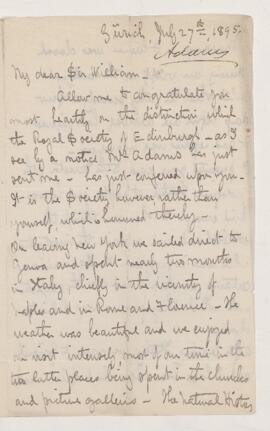 Zürich July 27th 1895.
Adams
My dear Sir William
Allow me to congratulate you
most heartily on the distinction which
the Royal Society of Edinburgh – as I
see by a notice Mrs Adams has just
sent me – has just conferred upon you –
It is the Society however rather than
yourself which is honoured thereby –
On leaving New York we sailed direct to
Genoa and spent nearly two months
in Italy chiefly in the vicinity of
Naples and in Rome and Florence – The
weather was beautiful and we enjoyed
our visit intensely most of our time in the
two latter places being spent in the churches
and picture galleries – The natural History